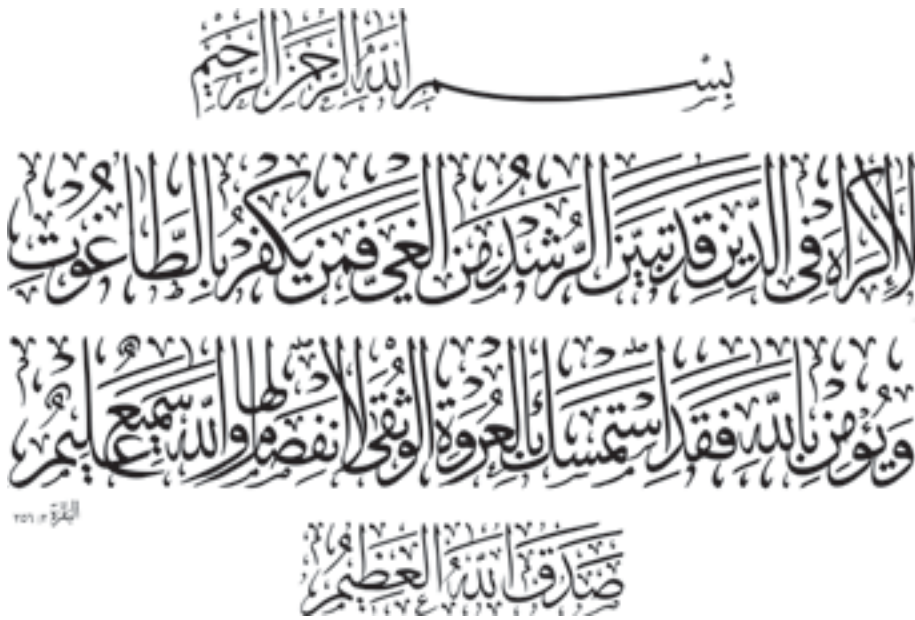 بِسْمِ اللَّهِ الرَّحْمَنِ الرَّحِيمِ
لَا إِكْرَاهَ فِي الدِّينِ قَد تَّبَيَّنَ الرُّشْدُ مِنَ الْغَيِّ فَمَن يَكْفُرْ بِالطَّاغُوتِ
وَيُؤْمِن بِاللَّهِ فَقَدِ اسْتَمْسَكَ بِالْعُرْوَةِ الْوُثْقَى لَا انفِصَامَ لَهَا وَاللَّهُ سَمِيعٌ عَلِيمٌ
البقرة ٢: ٢٥٦
صَدَقَ اللَّهُ الْعَظِيمُ